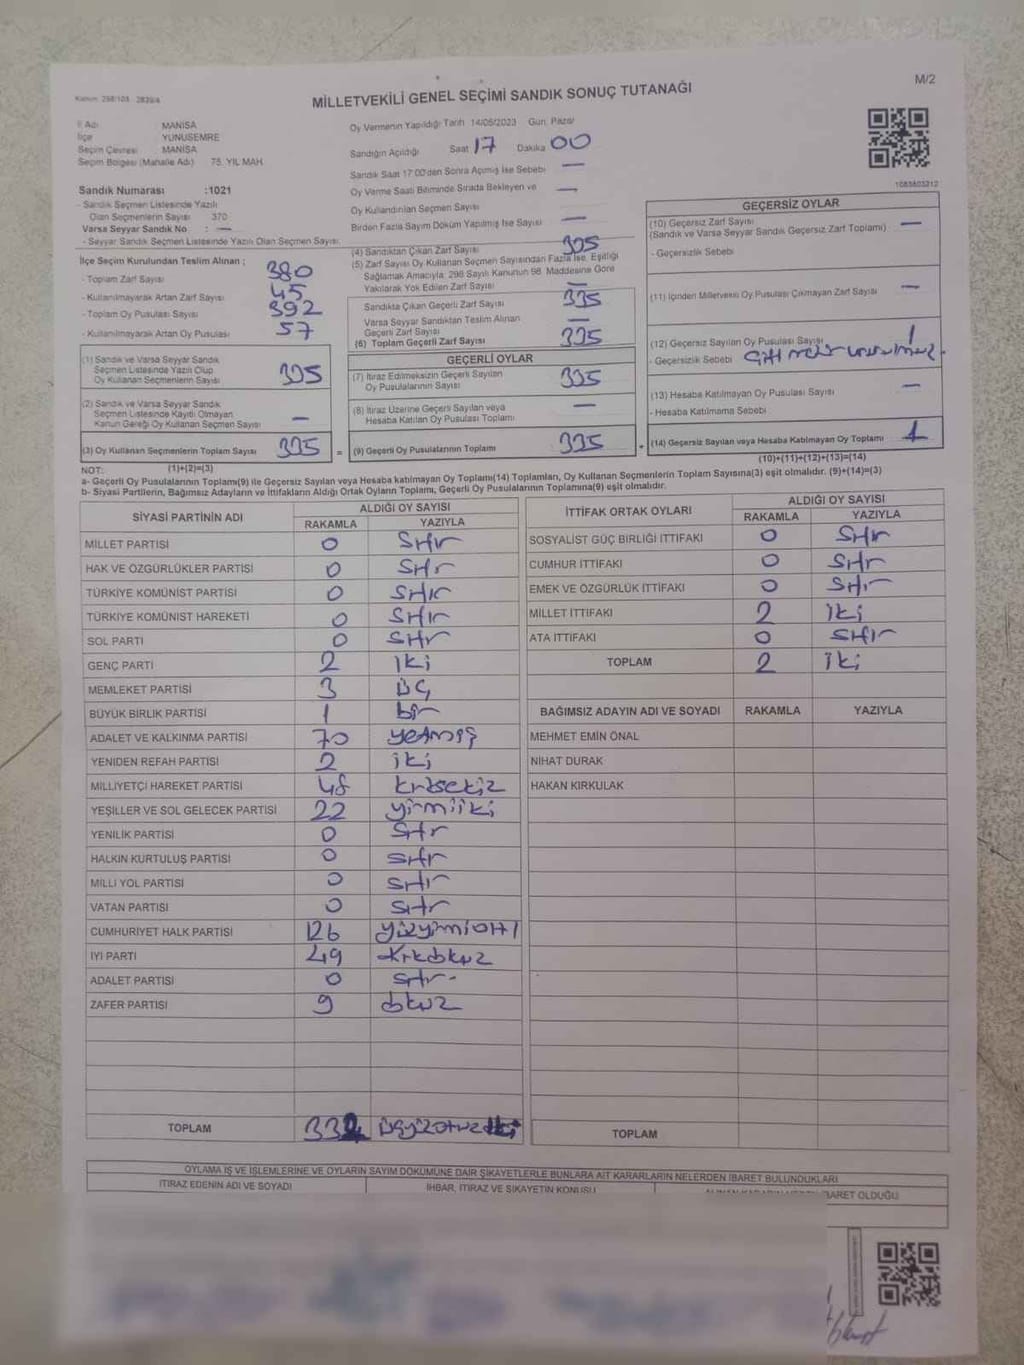 M/2
Kanun: 298/103 2839/4
MİLLETVEKİLİ GENEL SEÇİMİ SANDIK SONUÇ TUTANAĞI
İl Adı MANİSA
İlçe YUNUSEMRE
Seçim Çevresi MANİSA
Seçim Bölgesi (Mahalle Adı) 75. YIL MAH.
Sandık Numarası :1021
- Sandık Seçmen Listesinde Yazılı
Olan Seçmenlerin Sayısı 370
Varsa Seyyar Sandık No : —
- Seyyar Sandık Seçmen Listesinde Yazılı Olan Seçmen Sayısı:
İlçe Seçim Kurulundan Teslim Alınan ;
- Toplam Zarf Sayısı 380
- Kullanılmayarak Artan Zarf Sayısı 45
- Toplam Oy Pusulası Sayısı 392
- Kullanılmayarak Artan Oy Pusulası 57
(1) Sandık ve Varsa Seyyar Sandık
Seçmen Listesinde Yazılı Olup
Oy Kullanan Seçmenlerin Sayısı 335
(2) Sandık ve Varsa Seyyar Sandık
Seçmen Listesinde Kayıtlı Olmayan
Kanun Gereği Oy Kullanan Seçmen Sayısı —
(3) Oy Kullanan Seçmenlerin Toplam Sayısı 335
Oy Vermenin Yapıldığı Tarih 14/05/2023 Gün: Pazar
Sandığın Açıldığı Saat 17 Dakika 00
Sandık Saat 17:00'den Sonra Açılmış İse Sebebi —
Oy Verme Saati Bitiminde Sırada Bekleyen ve —
Oy Kullandırılan Seçmen Sayısı
Birden Fazla Sayım Döküm Yapılmış İse Sayısı —
(4) Sandıktan Çıkan Zarf Sayısı 335
(5) Zarf Sayısı Oy Kullanan Seçmen Sayısından Fazla İse, Eşitliği
Sağlamak Amacıyla; 298 Sayılı Kanunun 98. Maddesine Göre
Yakılarak Yok Edilen Zarf Sayısı —
Sandıkta Çıkan Geçerli Zarf Sayısı 335
Varsa Seyyar Sandıktan Teslim Alınan
Geçerli Zarf Sayısı —
(6) Toplam Geçerli Zarf Sayısı 335
GEÇERLİ OYLAR
(7) İtiraz Edilmeksizin Geçerli Sayılan
Oy Pusulalarının Sayısı 335
(8) İtiraz Üzerine Geçerli Sayılan veya
Hesaba Katılan Oy Pusulası Toplamı —
= (9) Geçerli Oy Pusulalarının Toplamı 335
1083803212
GEÇERSİZ OYLAR
(10) Geçersiz Zarf Sayısı —
(Sandık ve Varsa Seyyar Sandık Geçersiz Zarf Toplamı)
- Geçersizlik Sebebi
(11) İçinden Milletvekili Oy Pusulası Çıkmayan Zarf Sayısı —
(12) Geçersiz Sayılan Oy Pusulası Sayısı 1
- Geçersizlik Sebebi
(13) Hesaba Katılmayan Oy Pusulası Sayısı —
- Hesaba Katılmama Sebebi
+ (14) Geçersiz Sayılan veya Hesaba Katılmayan Oy Toplamı 1
NOT: (1)+(2)=(3) (10)+(11)+(12)+(13)=(14)
a- Geçerli Oy Pusulalarının Toplamı(9) ile Geçersiz Sayılan veya Hesaba katılmayan Oy Toplamı(14) Toplamları, Oy Kullanan Seçmenlerin Toplam Sayısına(3) eşit olmalıdır. (9)+(14)=(3)
b- Siyasi Partilerin, Bağımsız Adayların ve İttifakların Aldığı Ortak Oyların Toplamı, Geçerli Oy Pusulalarının Toplamına(9) eşit olmalıdır.
SİYASİ PARTİNİN ADI ALDIĞI OY SAYISI
RAKAMLA YAZIYLA
MİLLET PARTİSİ 0 SIFIR
HAK VE ÖZGÜRLÜKLER PARTİSİ 0 SIFIR
TÜRKİYE KOMÜNİST PARTİSİ 0 SIFIR
TÜRKİYE KOMÜNİST HAREKETİ 0 SIFIR
SOL PARTİ 0 SIFIR
GENÇ PARTİ 2 iki
MEMLEKET PARTİSİ 3 ÜÇ
BÜYÜK BİRLİK PARTİSİ 1 bir
ADALET VE KALKINMA PARTİSİ 70 yetmiş
YENİDEN REFAH PARTİSİ 2 iki
MİLLİYETÇİ HAREKET PARTİSİ 48 kırksekiz
YEŞİLLER VE SOL GELECEK PARTİSİ 22 yirmiiki
YENİLİK PARTİSİ 0 SIFIR
HALKIN KURTULUŞ PARTİSİ 0 SIFIR
MİLLİ YOL PARTİSİ 0 SIFIR
VATAN PARTİSİ 0 SIFIR
CUMHURİYET HALK PARTİSİ 126 yüzyirmialtı
İYİ PARTİ 49 kırkdokuz
ADALET PARTİSİ 0 SIFIR
ZAFER PARTİSİ 9 dokuz
TOPLAM 332 üçyüzotuziki
İTTİFAK ORTAK OYLARI ALDIĞI OY SAYISI
RAKAMLA YAZIYLA
SOSYALİST GÜÇ BİRLİĞİ İTTİFAKI 0 SIFIR
CUMHUR İTTİFAKI 0 SIFIR
EMEK VE ÖZGÜRLÜK İTTİFAKI 0 SIFIR
MİLLET İTTİFAKI 2 iki
ATA İTTİFAKI 0 SIFIR
TOPLAM 2 iki
BAĞIMSIZ ADAYIN ADI VE SOYADI RAKAMLA YAZIYLA
MEHMET EMİN ÖNAL
NİHAT DURAK
HAKAN KIRKULAK
TOPLAM
OYLAMA İŞ VE İŞLEMLERİNE VE OYLARIN SAYIM DÖKÜMÜNE DAİR ŞİKAYETLERLE BUNLARA AİT KARARLARIN NELERDEN İBARET BULUNDUKLARI
İTİRAZ EDENİN ADI VE SOYADI İHBAR, İTİRAZ VE ŞİKAYETİN KONUSU İBARET OLDUĞU